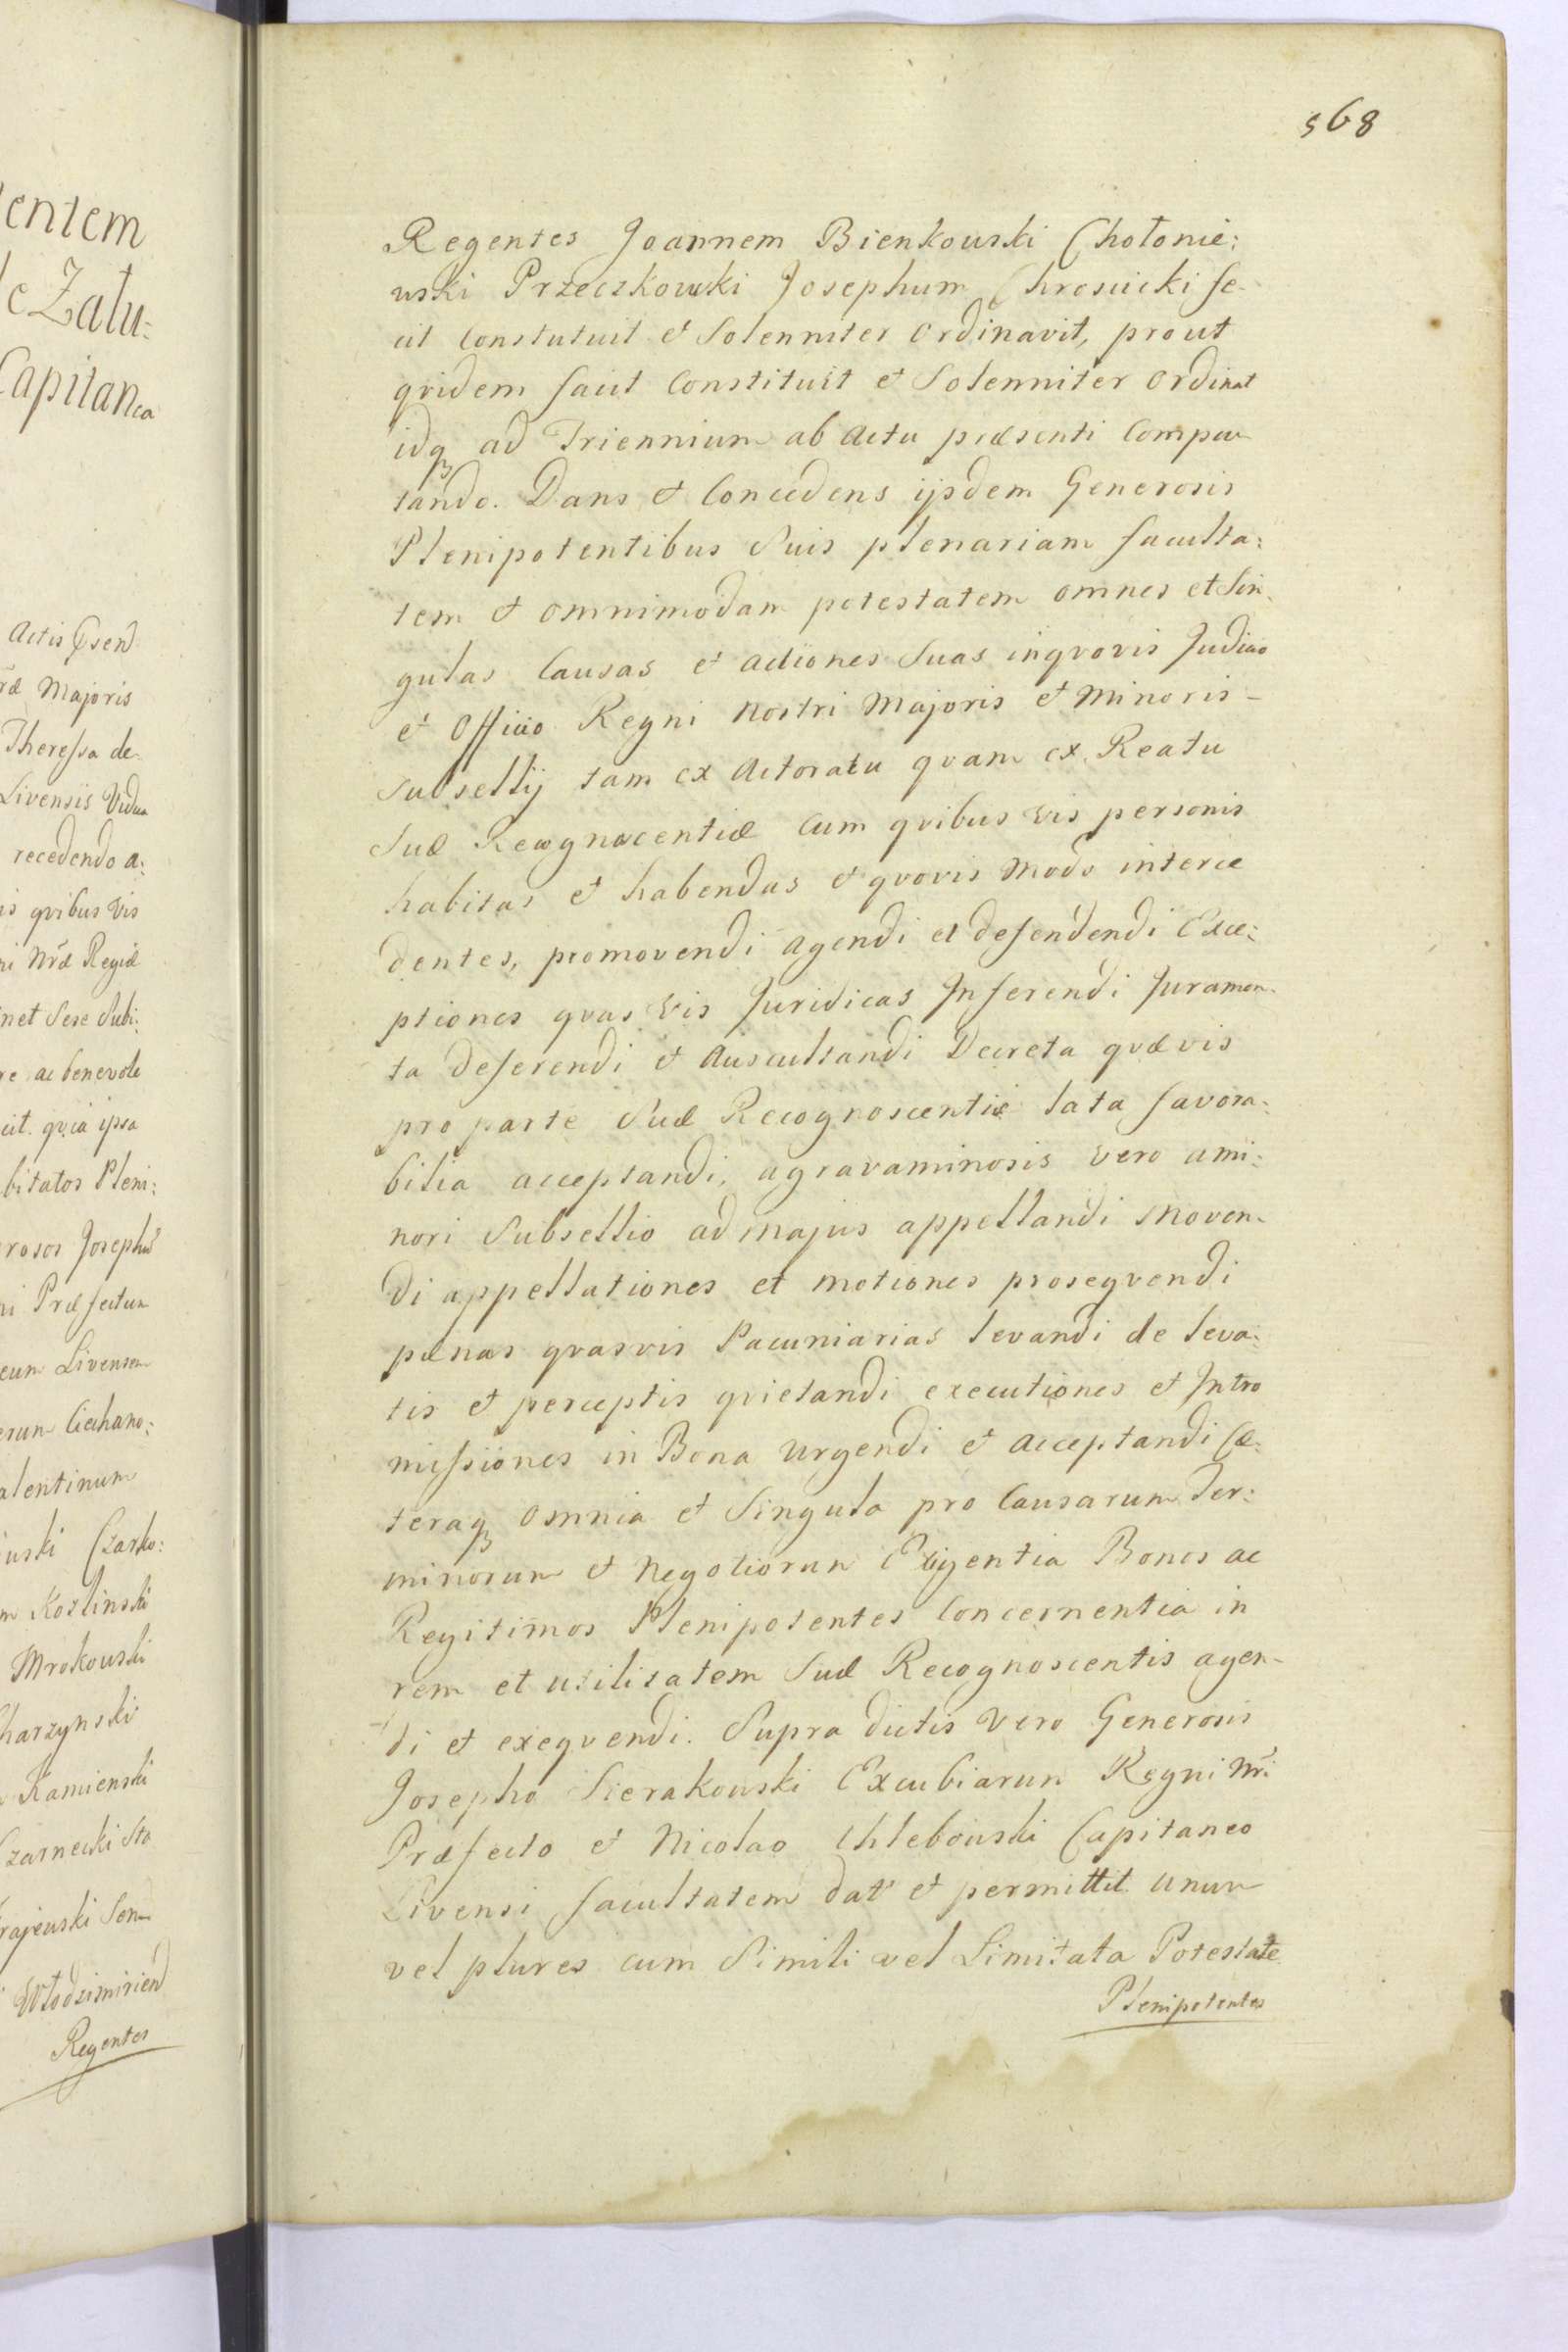 568
Regentes Joannem Bienkowski Chołonie:
wski Przeczkowski Josephum Chrościcki fe-
cit Constutuit et Solenniter Ordinavit, prout
qvidem facit Constituit et Solenniter Ordinat
idq ad Triennium ab Actu præsenti Compu
tando. Dans et Concedens ijsdem Generosis
Plenipotentibus Suis plenariam faculta:
tem et omnimodam potestatem omnes et Sin
gulas Causas et actiones Suas inqvovis Judicio
et Officio Regni Nostri Majoris et Minoris -
Subsellij tam ex Actoratu qvam ex Reatu
Suæ Recognocentiæ Cum qvibus vis personis
habitas et habendas et qvovis Modo interce
dentes, promovendi agendi et defendendi Exce:
ptiones qvas vis Juridicas Inferendi Juramen-
ta Deferendi et Auscultandi Decreta qvævis
pro parte Suæ Recognoscentiæ lata favora:
bilia acceptandi, agravaminosis vero a mi:
nori Subsellio ad majus appellandi Moven-
di appellationes et motiones proseqvendi
pænas qvasvis Pacuniarias levandi de leva:
tis et perceptis qvietandi executiones et Intro
missiones in Bona urgendi et acceptandi Cæ:
teraq omnia et Singula pro Causarum Ter:
minorum et Negotiorum Exigentia Bonos ac
Regitimos Plenipotentes Concernentia in
rem et utilitatem Suæ Recognoscentis agen-
di et exeqvendi. Supra dictis vero Generosis
Josepho Sierakowski Excubiarum Regni Nri
Præfecto et Nicolao Chlebowski Capitaneo
Livensi facultatem dat et permittit unum
vel plures cum Simili vel Limitata Potestate
Plenipotentes
entem
Zału:
Capitanea
Actis
Majoris
Theressa de
Livensis Vidua
recedendo a:
qvibus vis
Nræ Regiæ
net Sese Subi:
re ac benevole
cit. qvia ipsa
bitatos Pleni:
rosos Josephu
Præfectum
eum Livensem
Ciechano:
alentinum
wski Czarko:
Kozlinski
Mrokowski
harzynski
Kamienski
Czarnecki Sta
rajewski Sen
Włodzimirien
Regentes